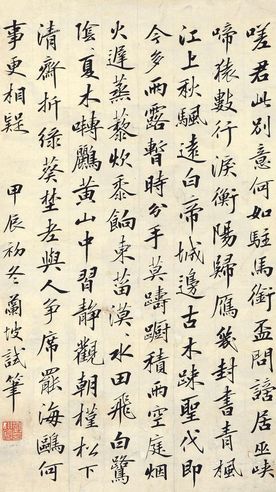 嗟君此別意何如駐馬銜盃問謫居巫峽
啼猿數行淚衡陽歸雁幾封書青楓
江上秋颿遠白帝城邊古木疎聖代即
今多雨露暫時分手莫躊躇積雨空庭烟
火遲蒸藜炊黍餉東菑漠水田飛白鷺
陰夏木囀鸝黃山中習靜觀朝槿松下
清齋折綠葵埜老與人爭席罷海鷗何
事更相疑 甲辰初冬蘭坡試筆